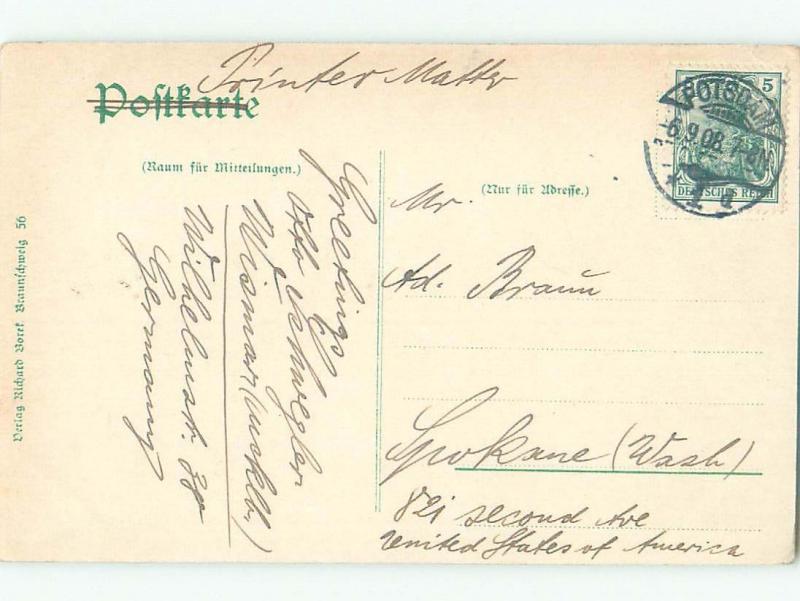 Printer Matter
Postkarte
(Raum für Mitteilungen.)
(Nur für Adresse.)
5
POTSDAM
-6.9.08. 7-8N.
1 d
DEUTSCHES REICH
Greetings
Otto Schwegler
Wismar (Mecklb.)
Wilhelmstr. 38
Germany
Mr.
Ad. Braun
Spokane (Wash)
821 second Ave
United States of America
Verlag Richard Borek Braunschweig 56